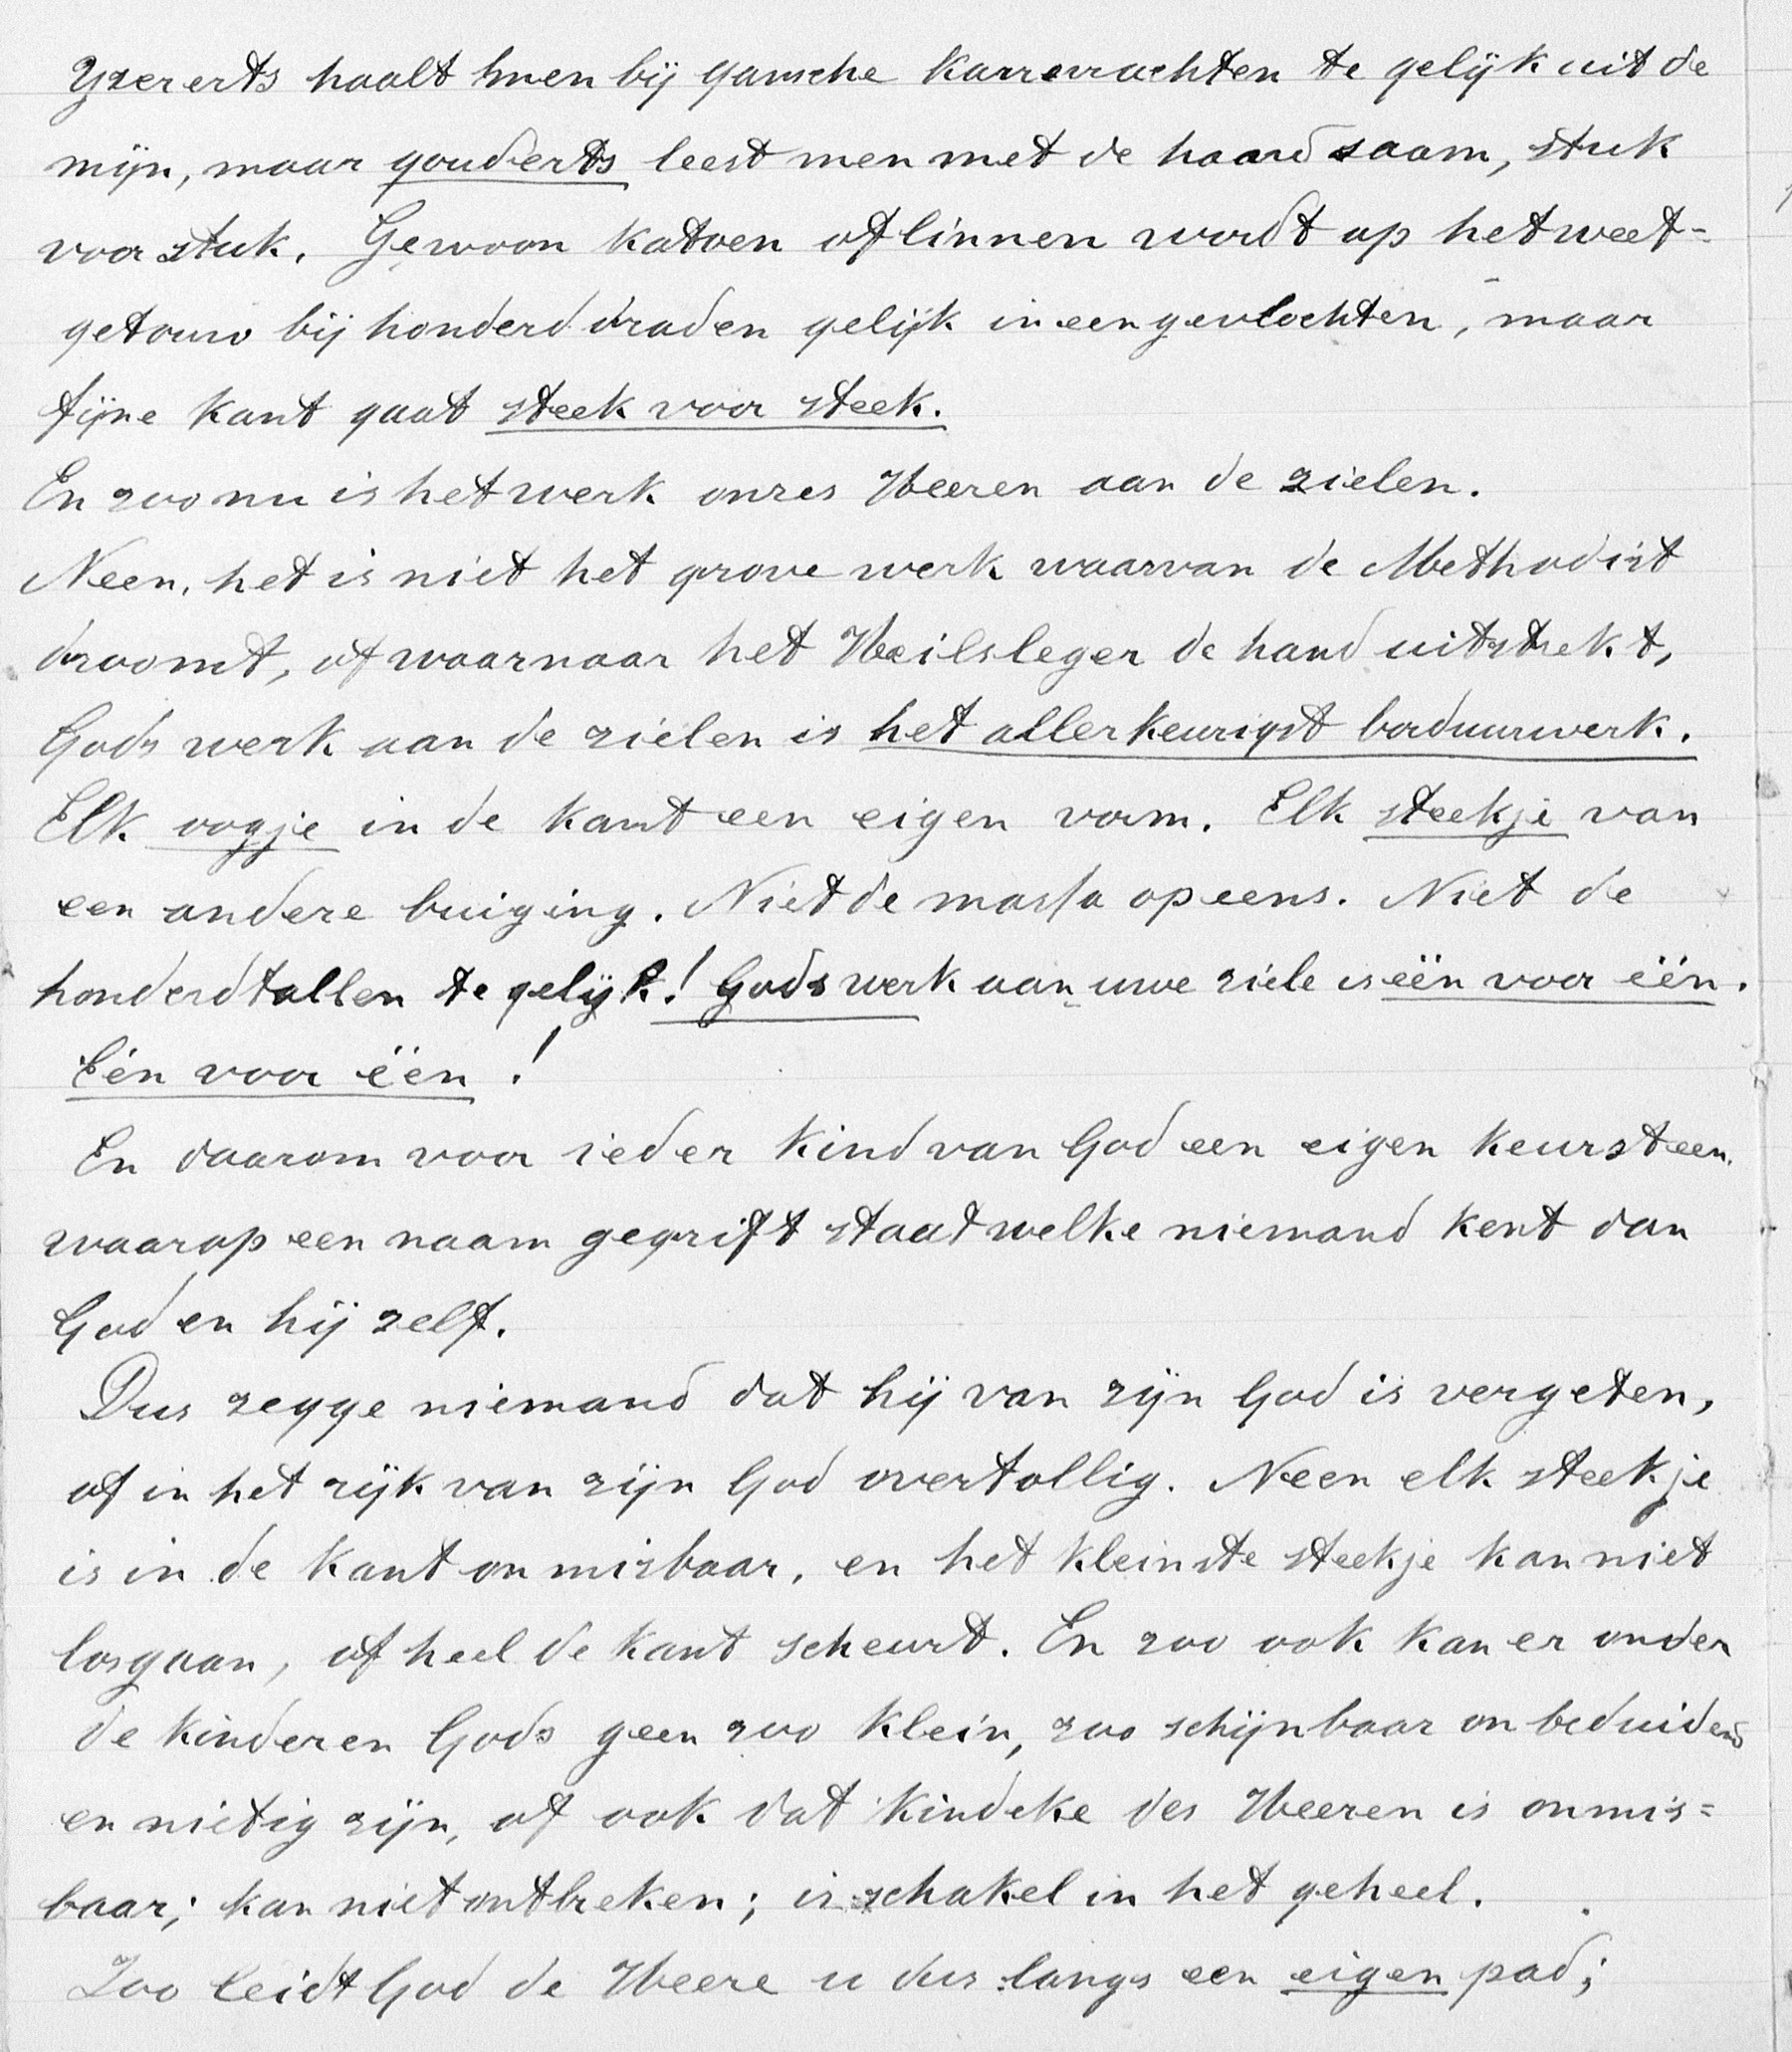 Yzererts haalt men bij gansche karrevrachten te gelijk uit de
mijn, maar gouderts leest men met de hand saam, stuk
voor stuk. Gewoon katoen of linnen wordt op het weef=
getouw bij honderd draden gelijk ineengevlochten, maar
fijne kant gaat steek voor steek.
En zoo nu is het werk onzes Heeren aan de zielen.
Neen, het is niet het grove werk waarvan de Methodist
droomt, of waarnaar het Heilsleger de hand uitstrekt,
Gods werk aan de zielen is het allerkeurigst borduurwerk.
Elk oogje in de kant een eigen vorm. Elk steekje van
een andere buiging. Niet de massa opeens. Niet de
honderdtallen te gelijk! Gods werk aan uwe ziele is één voor één.
Eén voor één!
En daarom voor ieder kind van God een eigen keursteen.
waarop een naam gegrift staat welke niemand kent dan
God en hij zelf.
Dus zegge niemand dat hij van zijn God is vergeten,
of in het rijk van zijn God overtollig. Neen elk steekje
is in de kant onmisbaar, en het kleinste steekje kan niet
losgaan, of heel de kant scheurt. En zoo ook kan er onder
de kinderen Gods geen zoo klein, zoo schijnbaar onbeduidend
en nietig zijn, of ook dat kindeke des Heeren is onmis=
baar; kan niet ontbreken; is schakel in het geheel.
Zoo leidt God de Heere u dus langs een eigen pad;